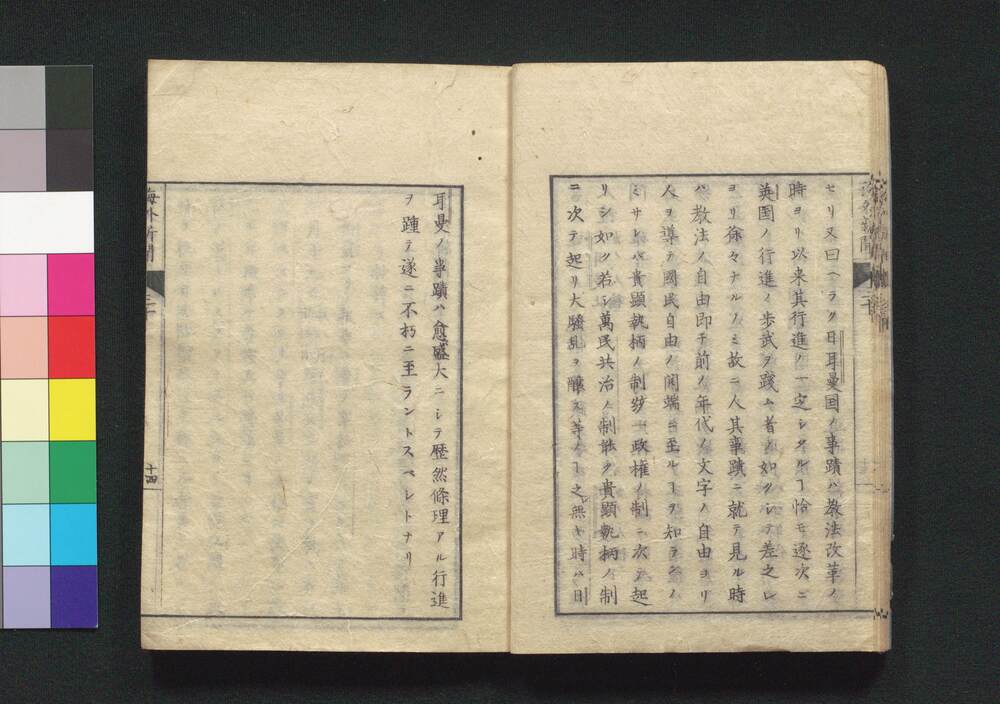 セリ又曰ヘラク日耳曼国ノ事蹟ハ教法改革ノ
時ヨリ以来其行進ノ一定シタルヿ恰モ逐次ニ
英国ノ行進ノ歩武ヲ踐ム者ノ如クシテ差之レ
ヨリ徐々ナルノミ故ニ人其事蹟ニ就テ見ル時
ハ教法ノ自由即チ前ノ年代ノ文字ノ自由ヨリ
人ヲ導テ國民自由ノ開端ニ至ルヿヲ知ラクノ
ミサレハ貴顕執柄ノ制政権ノ制ニ次テ起
リシ如ク若シ萬民共治ノ制能ク貴顕執柄ノ制
ニ次テ起リ大騒乱ヲ醸ス等ノヿ之レ無キ時ハ日
耳曼ノ事蹟ハ愈盛大ニシテ歴然條理アル行進
ヲ踵テ遂ニ不朽ニ至ラントスベレトナリ
海外新聞
十四